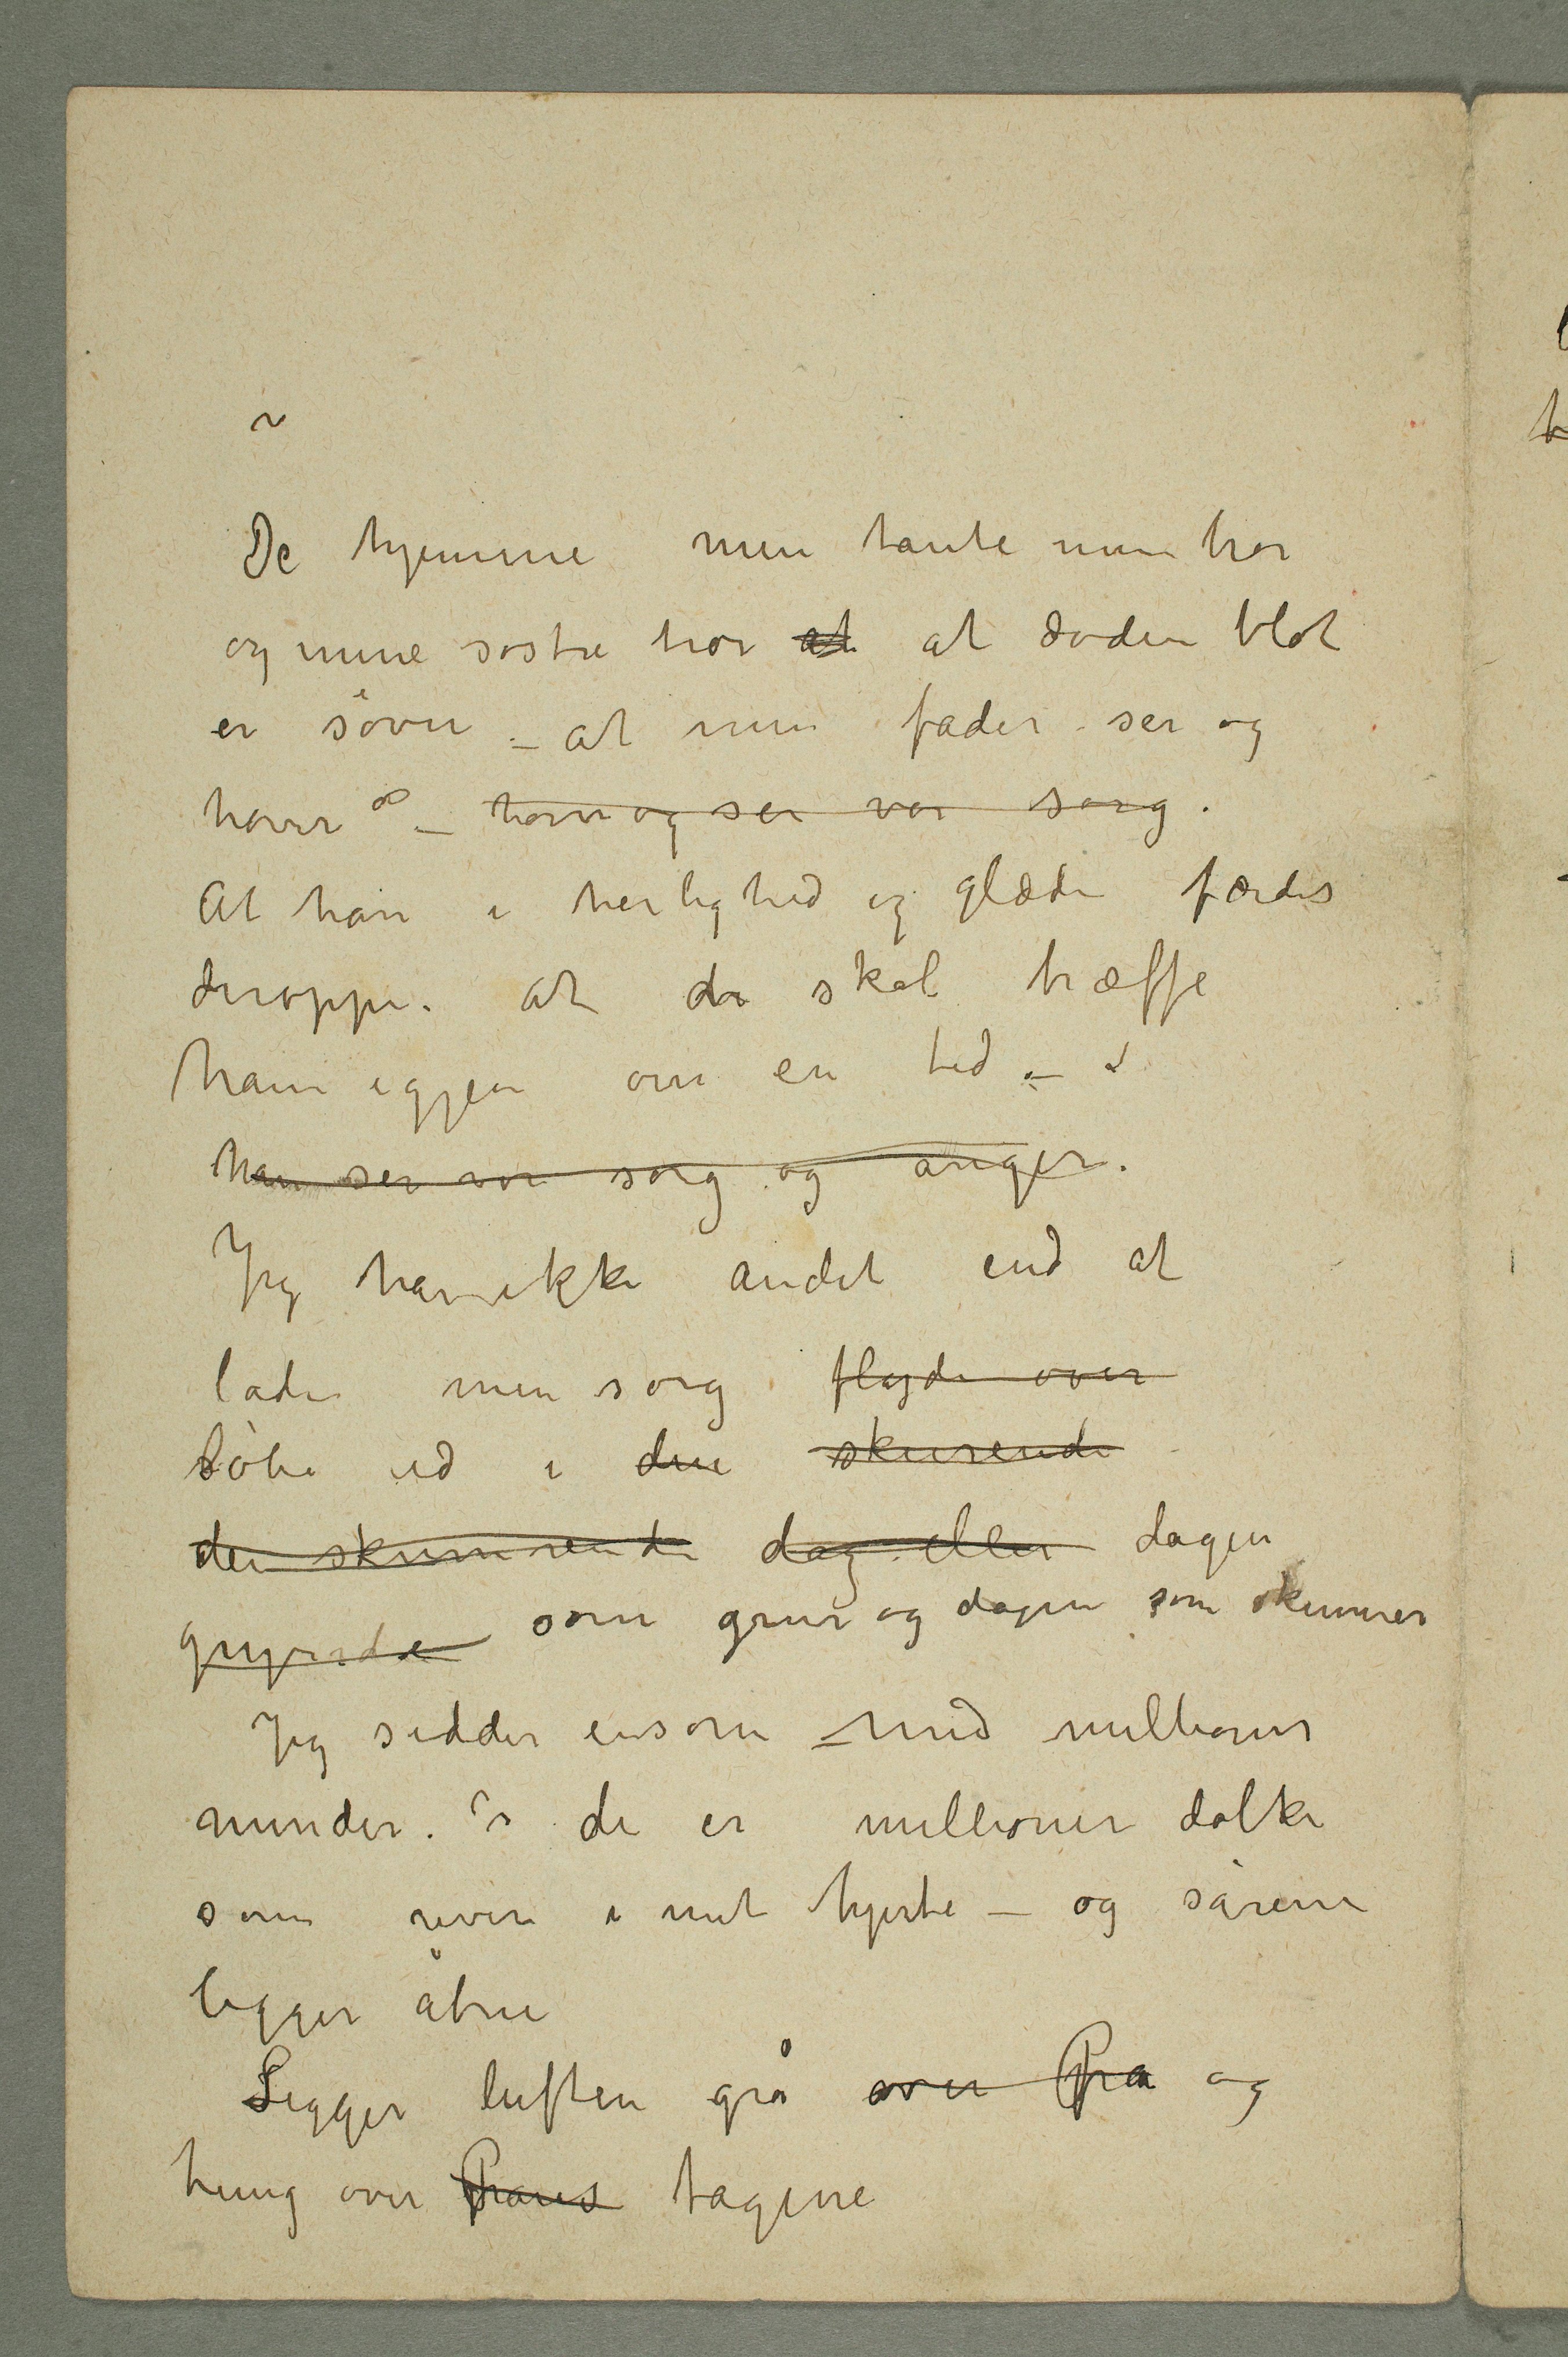 De hjemme min tante min bror
og mine søstre tror at at døden blot
er søvn – at min fader ser og
hører – hører og ser vor sorg.
At han i herlighed og glæde færdes
deroppe. at de skal træffe
ham igjen om en tid –
han ser vor sorg og anger.
Jeg har ikke andet end at
lade min sorg flyde over
løbe ud i den skinrende
den skumrende dag eller dagen
gryende som gryr og dagen som skumrer
Jeg sidder ensom – med millioner
minder. de er millioner dolke
som river i mit hjerte – og sårene
ligger åbne
Ligger luften grå over Pra og
tung over Paris tagene